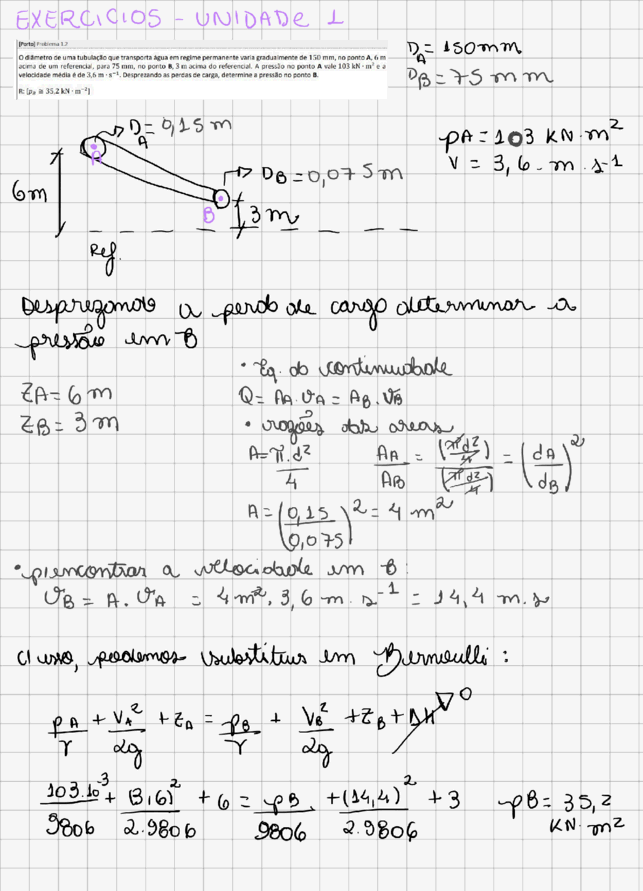 EXERCICIOS - UNIDADE 1
[Porto] Problema 1.2
O diâmetro de uma tubulação que transporta água em regime permanente varia gradualmente de 150 mm, no ponto A, 6 m
acima de um referencial, para 75 mm, no ponto B, 3 m acima do referencial. A pressão no ponto A vale 103 kN · m² e a
velocidade média é de 3,6 m · s⁻¹. Desprezando as perdas de carga, determine a pressão no ponto B.
R: [pB ≅ 35,2 kN · m⁻²]
DA = 150 mm
DB = 75 mm
pA = 103 KN · m²
V = 3,6 · m · s-1
DA = 0,15 m
A
6m
DB = 0,075m
B
3 m
Ref.
Desprezando a perda de carga determinar a
pressão em B
ZA = 6 m
ZB = 3 m
• Eq. da continuidade
Q = AA. vA = AB. vB
• razões das areas
A = π.d²/4 AA/AB = (πd²/4)/(πd²/4) = (dA/dB)²
A = (0,15/0,075)² = 4 m²
• p/encontrar a velocidade em B:
vB = A. vA = 4m². 3,6 m. s-1 = 14,4 m.s
C/ isso, podemos substituir em Bernoulli:
pA/γ + VA²/2g + ZA = pB/γ + VB²/2g + ZB + ΔH 0
103.10-3/9806 + (3,6)²/2.9806 + 6 = pB/9806 + (14,4)²/2.9806 + 3 pB = 35,2
KN · m²